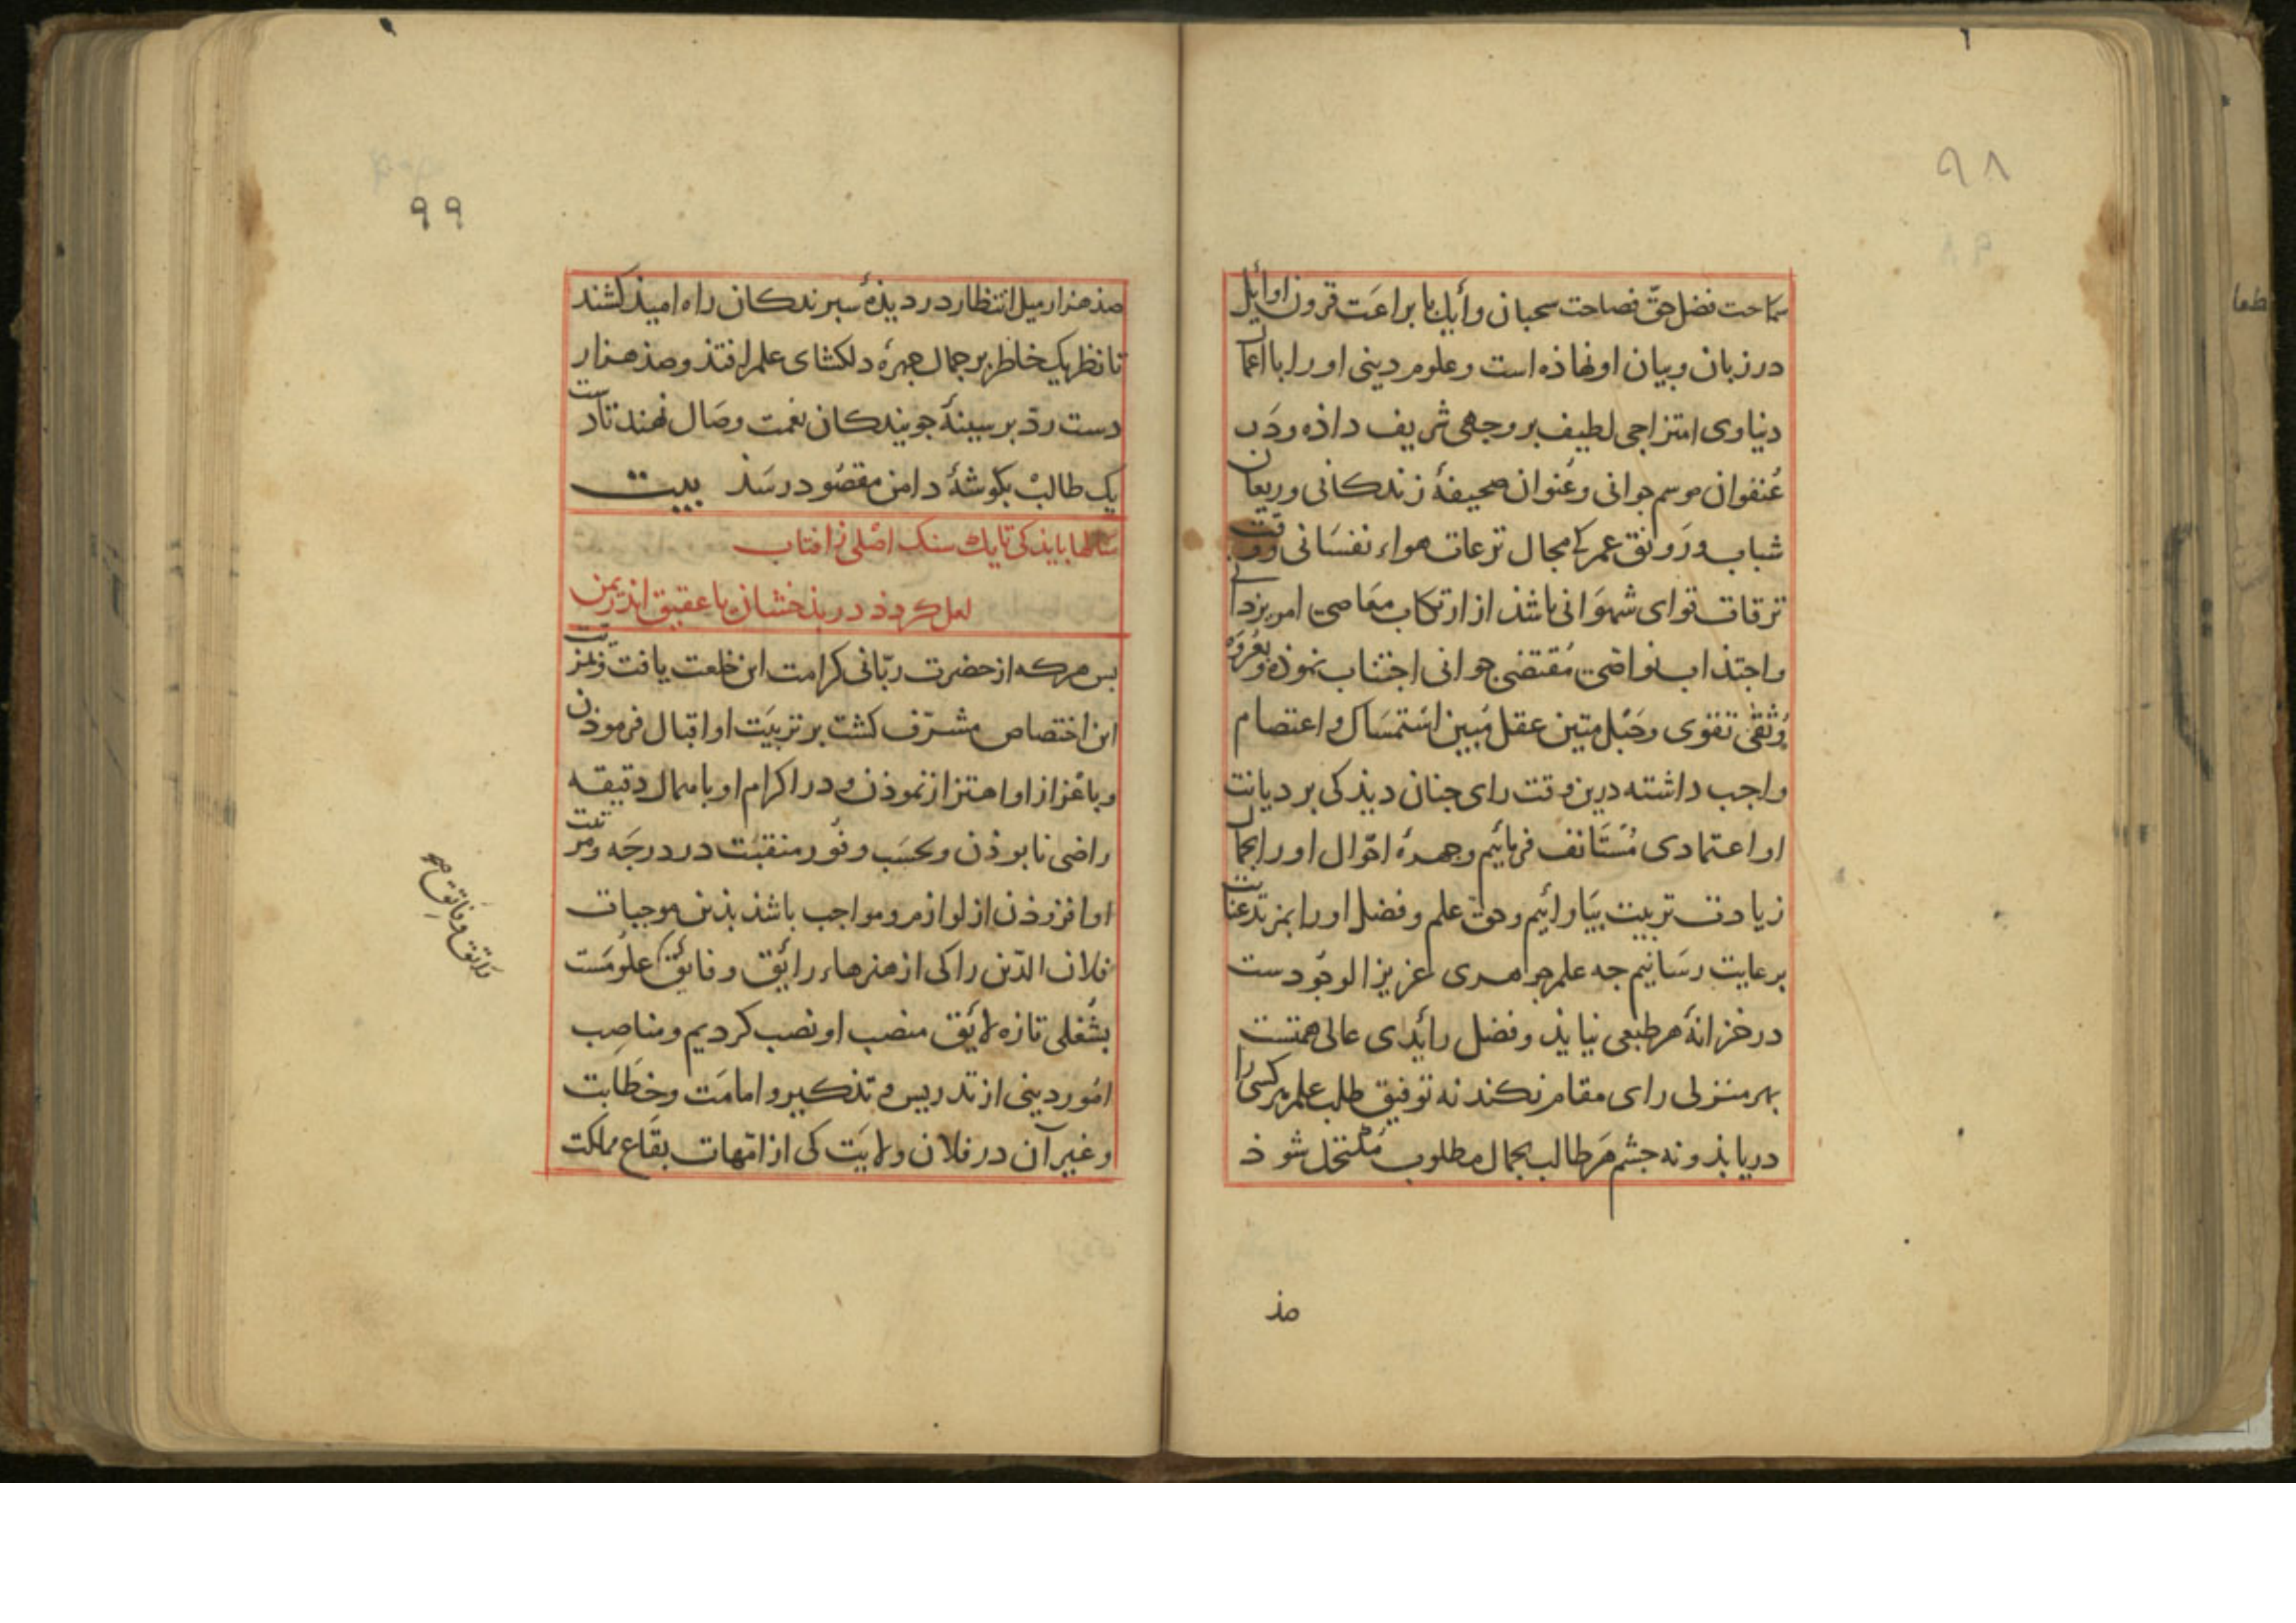 ۹۸
سماحت فضل حق فصاحت سحبان وائل با براعت قرون اوایل
در زبان و بیان او نهاذه است و علوم دینی او را با اعمال
دنیاوی امتزاجی لطیف بر وجهی شریف داذه و در
عُنفوان موسم جوانی و عُنوان صحیفهٔ زندکانی و ریعان
شباب و رَونق عمر کی مجال ترعات هواء نفسَانی وقت
ترقات قوای شهوَانی باشذ از ارتکاب معَاصی امر یزدانی
و اجتذاب نواصی مُقتضی جوانی اجتناب نموذه و بعُروَهٔ
وُثقیٰ تقوی و حَبْل متین عقل مُبین اسْتمسَاک و اعتصام
واجب داشته درین وقت رای جنان دیذ کی بر دیانت
او اعتمادی مُسْتَانف فرمائیم و جهرهٔ احوال او را بجمال
زیادت تربیت بیَارائیم و حق علم و فضل او را بمزید عنایت
برعایت رسَانیم جه علم جوهری عزیز الوجُودست
در خزانهٔ هر طبعی نیایذ و فضل رائدی عالی همتست
بهر منزلی رای مقام نکند نه توفیق طلب علم هر کسی را
دریابذ و نه جشم هَر طالب بجمال مطلوب مُکتحل شوذ
صذ
۹۹
صذ هزار میل انتظار در دیذهٔ سبرندکان راه امیذ کشند
تا نظر یک خاطر بر جمال جهرهٔ دلکشای علم افتذ و صذ هزار
دست ردّ بر سینهٔ جویندکان نعمت وصَال نهند تا دست
یک طالبْ بکوشهٔ دامن مقصُود رسَذ بیت
سَالها بایذ کی تا یک سنک اصْلی ز افتاب
لعل کردذ در بذخشان یا عقیق انذر یمن
بس هرکه از حضرت ربّانی کرامت این خلعت یافت و بمزیّت
این اختصاص مشرّف کشت بر تربیَت او اقبال فرموذن
و باعْزاز او اهتزاز نموذن و در اکرام او باهمال دقیقه
راضی نابوذن و بحسَب وفُور منقبَت در درجَه و مرتبت
او افزوذن از لوازم و مواجب باشذ بذین موجبات
فلان الدّین را کی از هنرهاء رائق و فائق علومَست
بشُغلی تازه لایَق منصب او نصب کردیم و مناصِب
امُور دینی از تدریس و تذکیر و امامَت و خطَابت
و غیر آن در فلان ولایَت کی از امّهات بقَاع مملکت
دقایق وفایق صح